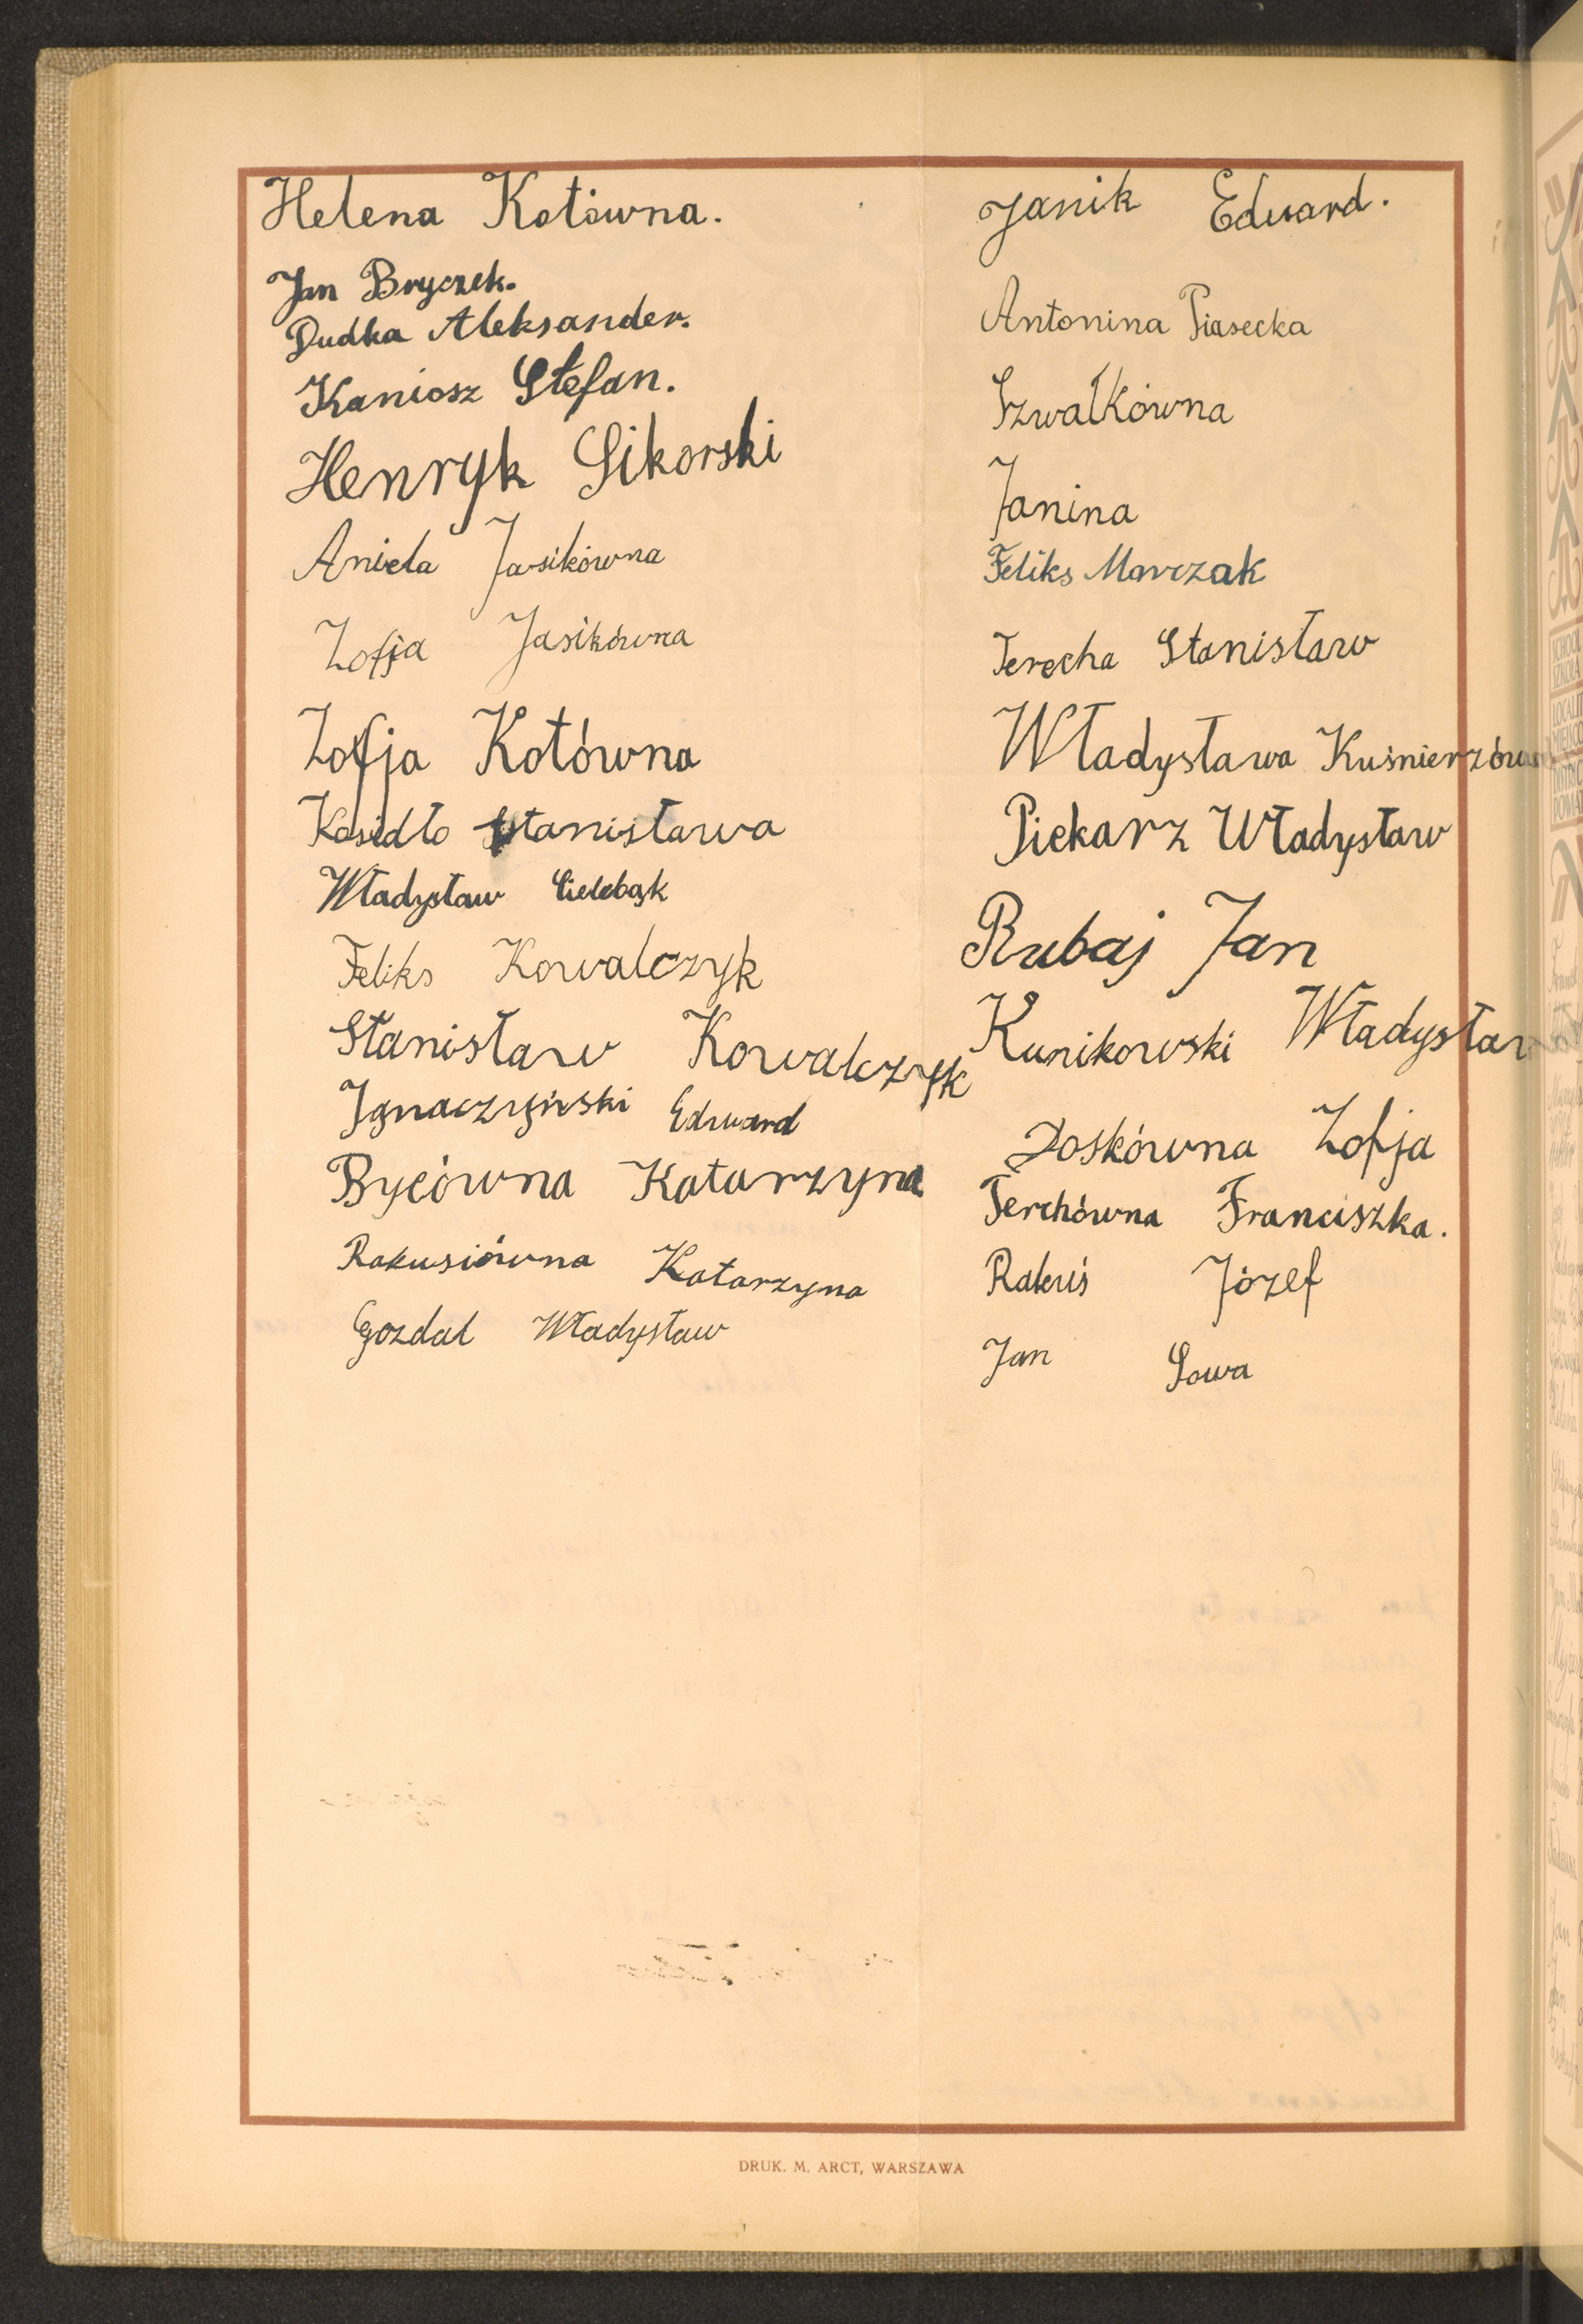 Helena Kotówna.
Jan Bryczek.
Dudka Aleksander.
Kaniosz Stefan.
Henryk Sikorski
Aniela Jasikówna
Zofja Jasikówna
Zofja Kotówna
Kosidło Stanisława
Władysław Cielebąk
Feliks Kowalczyk
Stanisław Kowalczyk
Ignaczyński Edward
Bycówna Katarzyna
Rakusiówna Katarzyna
Gozdal Władysław
Janik Edward.
Antonina Piasecka
Szwałkówna
Janina
Feliks Marczak
Terecha Stanisław
Władysława
Piekarz Władysław
Rubaj Jan
Kunikowski Władysław
Zoskówna Zofja
Terchówna Franciszka.
Rakuś Józef
Jan Sowa
DRUK. M. ARCT, WARSZAWA